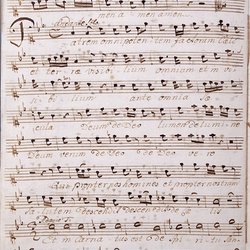 men amen amen
Patrem omnipotentem factorem caeli
et terrae visibilium omnium et in vi
sibilium ante omnia sae
cula Deum de Deo lumen de lumine
Deum verum de Deo de Deo vero
Qui propter nos homines et propter nostram
salutem Descendit Descendit de caelis
Et in Carnatus est de spiritu